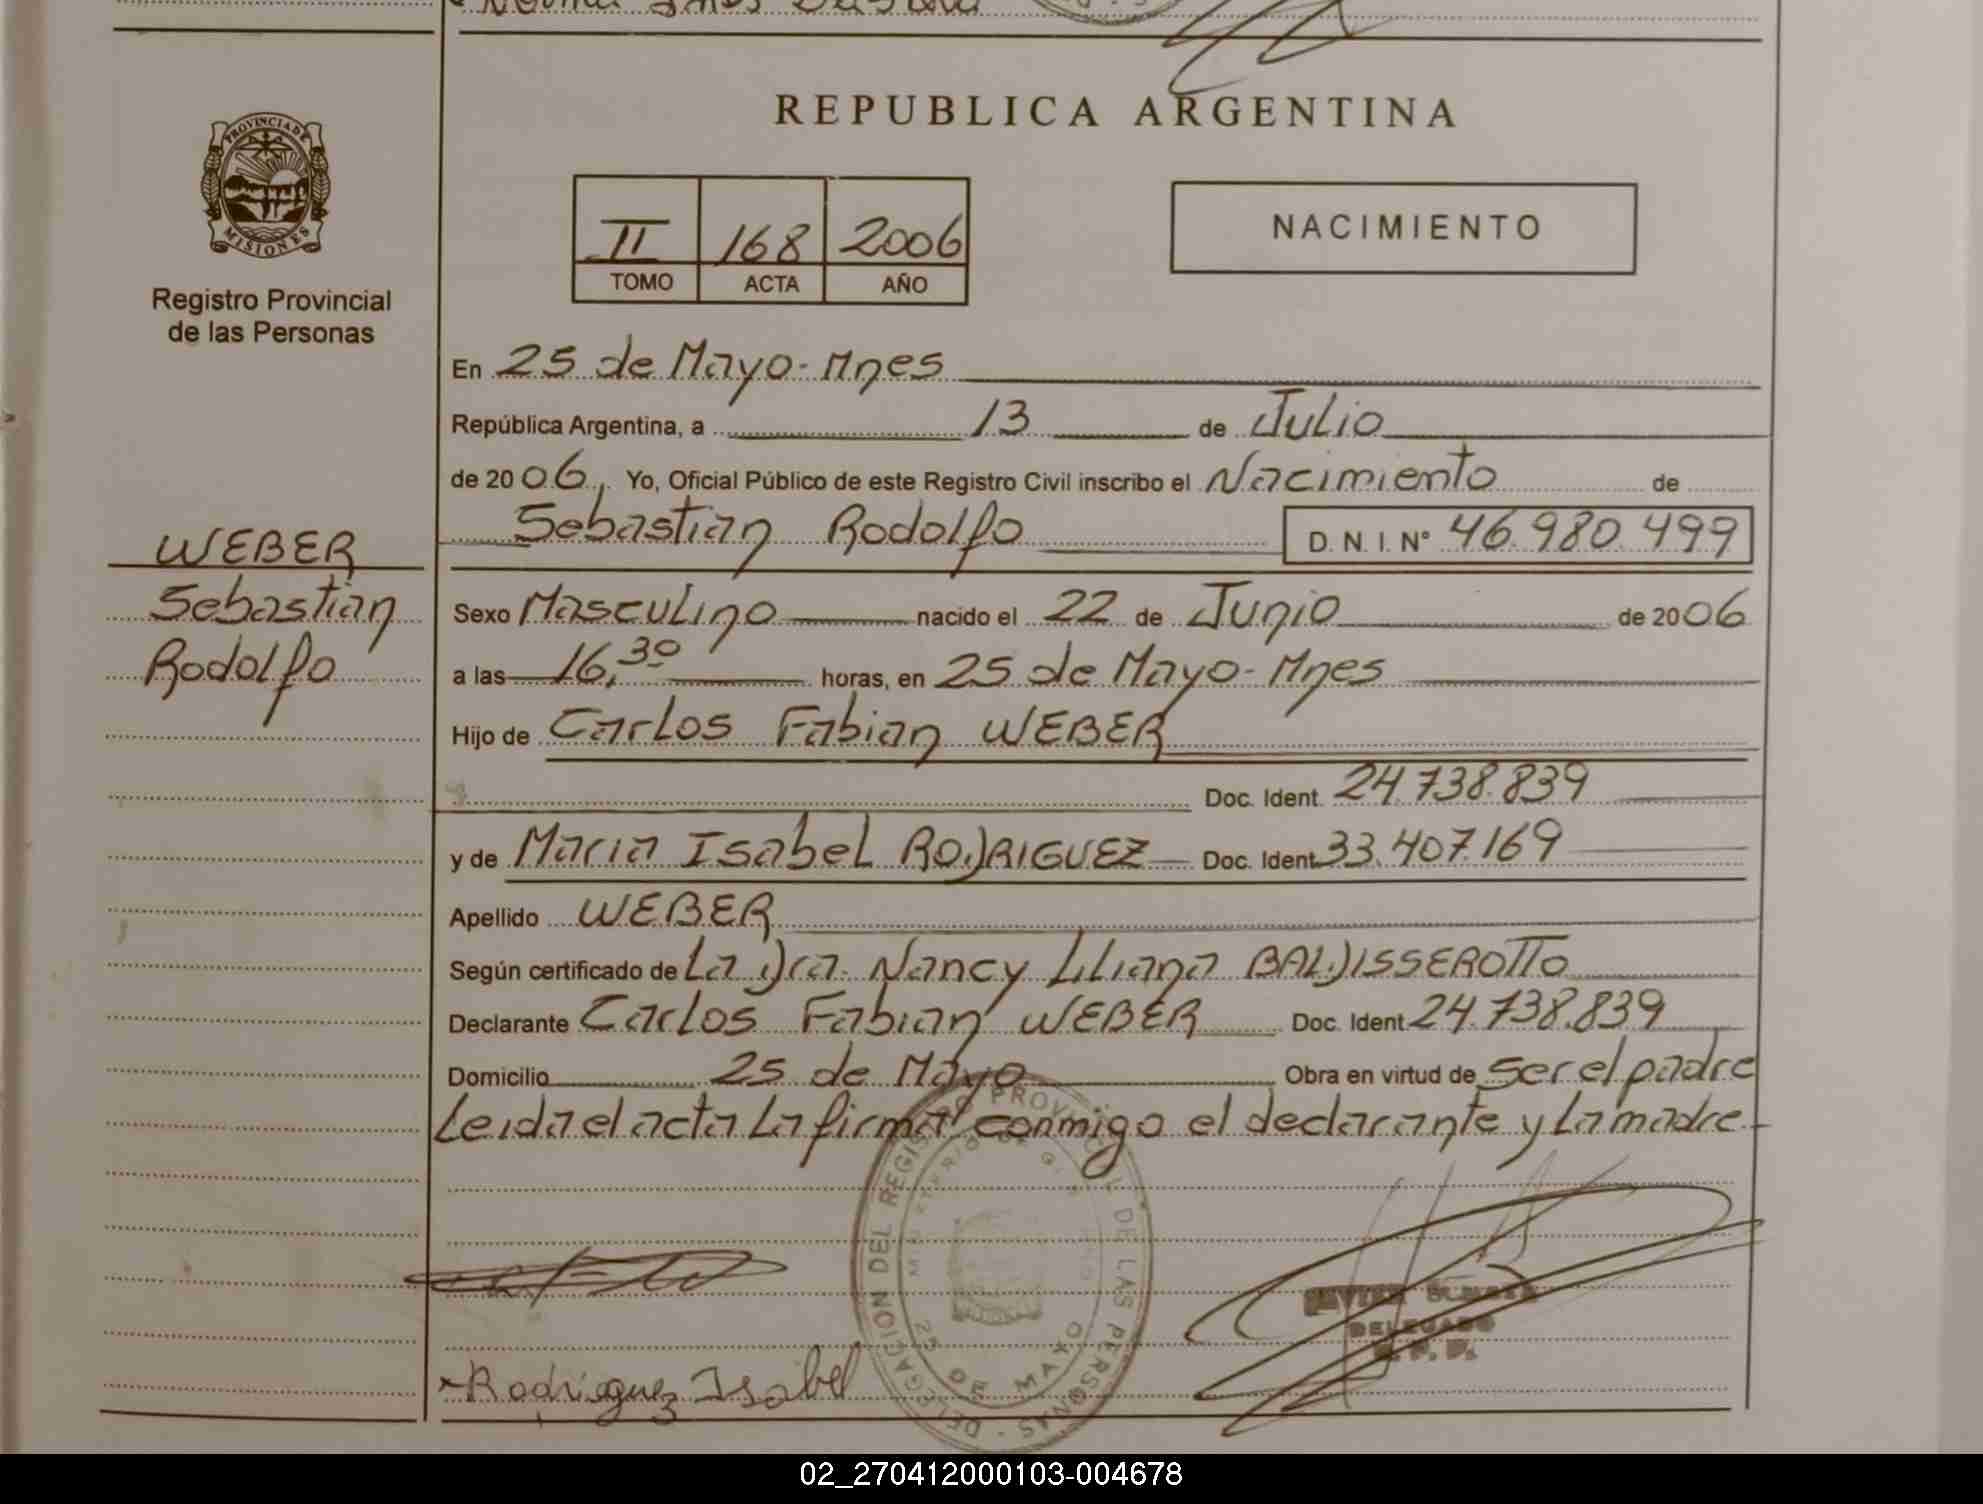 REPUBLICA ARGENTINA
PROVINCIA DE
MISIONES
Registro Provincial
de las Personas
II 168 2006
TOMO ACTA AÑO
NACIMIENTO
En 25 de Mayo - Mnes
República Argentina, a 13 de Julio
de 2006, Yo, Oficial Público de este Registro Civil inscribo el Nacimiento de
Sebastian Rodolfo D. N. I. N° 46.980.499
WEBER
Sebastian
Rodolfo
Sexo Masculino nacido el 22 de Junio de 2006
a las 16,30 horas, en 25 de Mayo - Mnes
Hijo de Carlos Fabian WEBER
Doc. Ident. 24.738.839
y de Maria Isabel RODRIGUEZ Doc. Ident. 33.407.169
Apellido WEBER
Según certificado de La Dra. Nancy Liliana BALDISSEROTTO
Declarante Carlos Fabian WEBER Doc. Ident. 24.738.839
Domicilio 25 de Mayo Obra en virtud de ser el padre
Leida el acta La firma conmigo el declarante y La madre
DELEGACION DEL REGISTRO PROVINCIAL DE LAS PERSONAS
25 DE MAYO
DELEGADO
Rodriguez Isabel
02_270412000103-004678